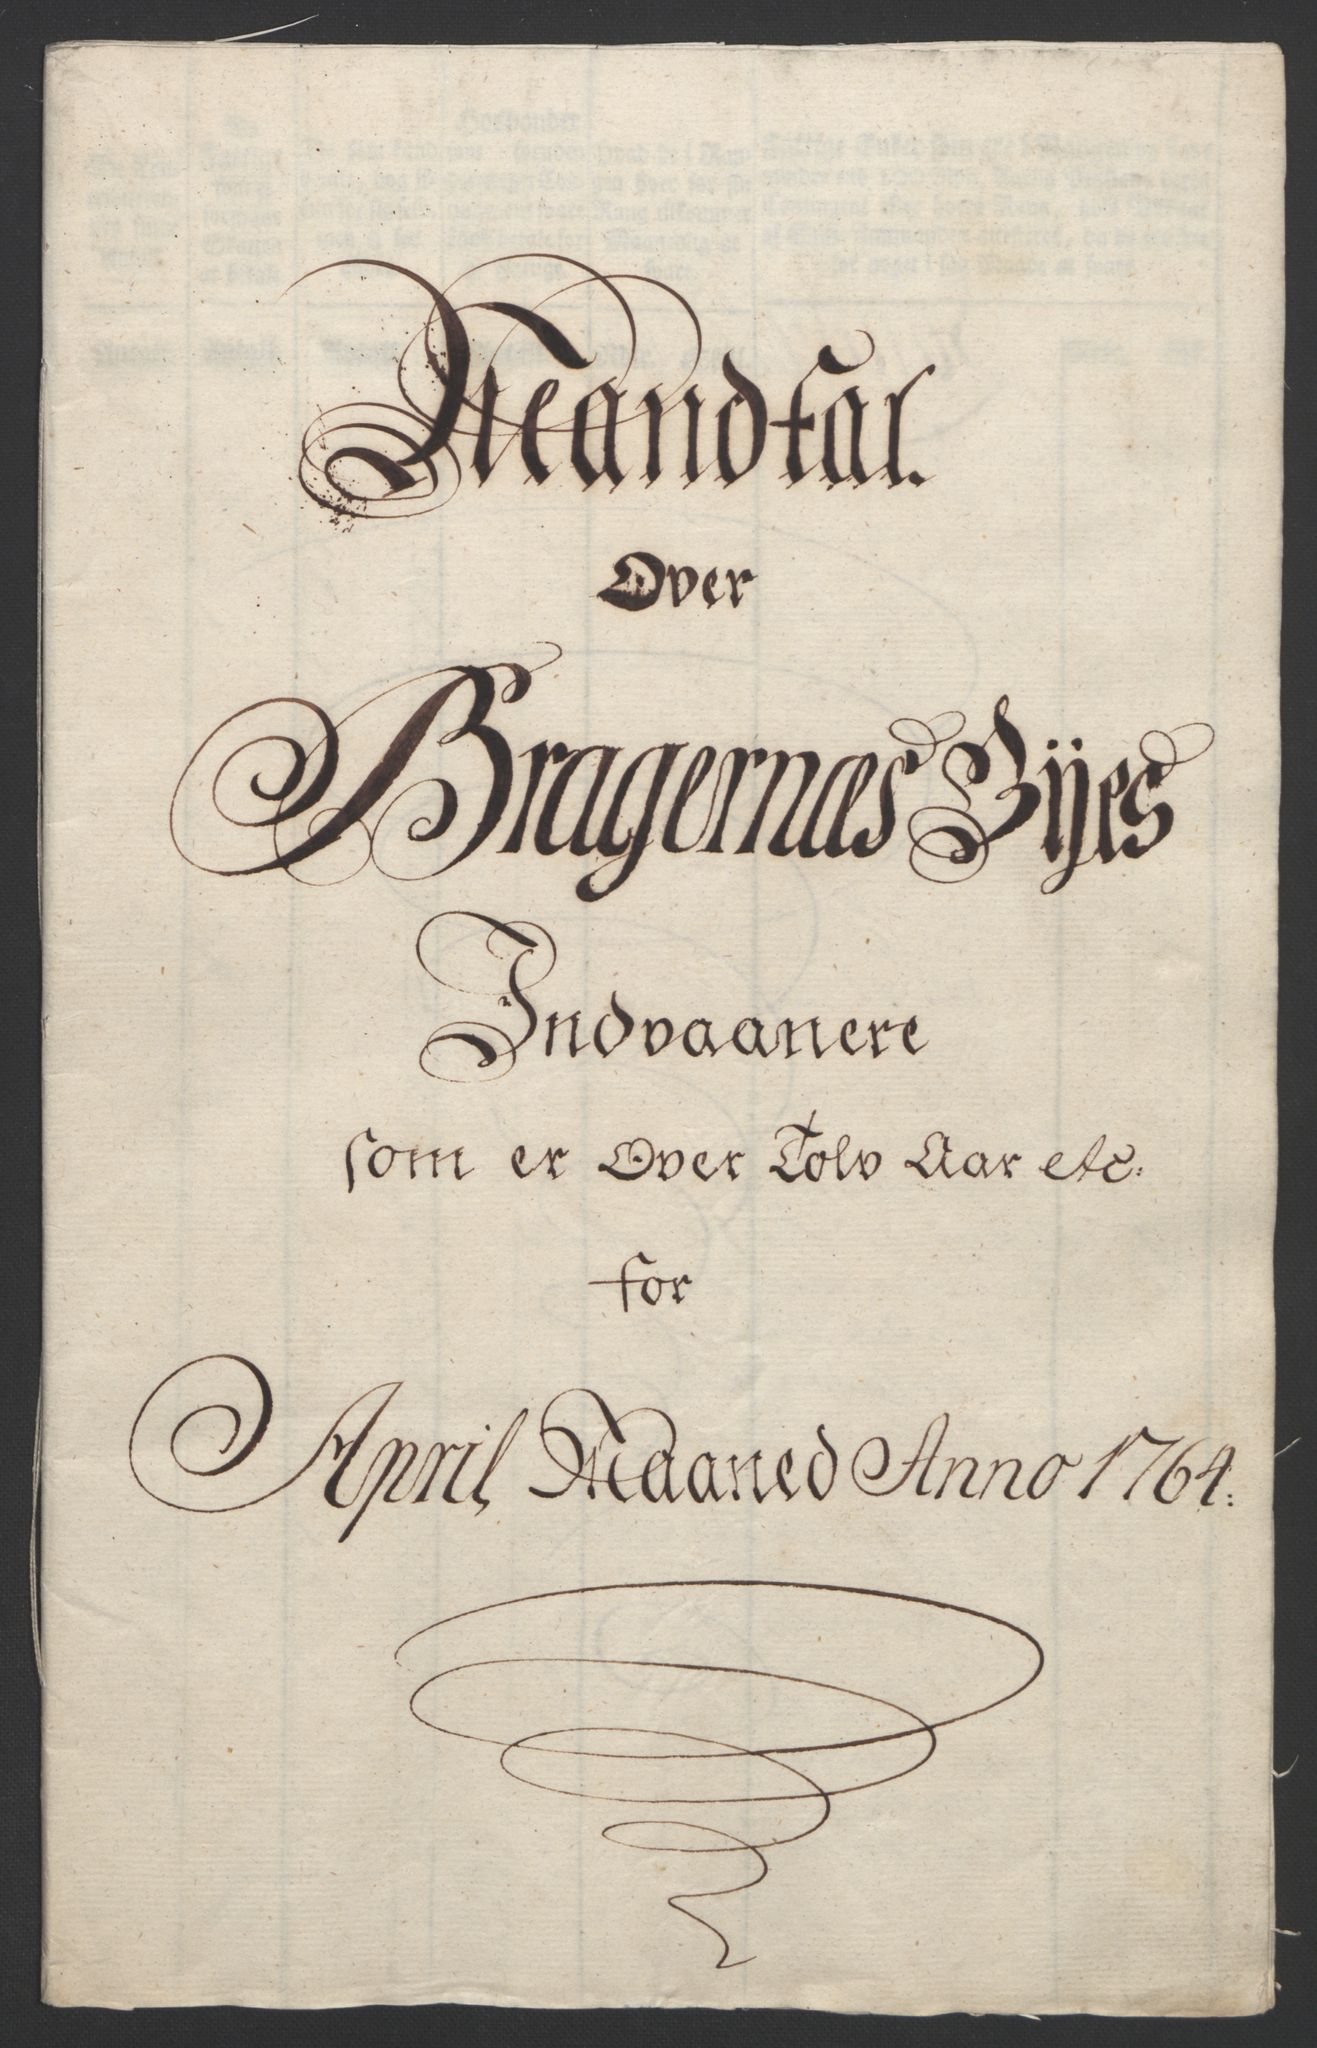 Mandtal.
Over
Bragernæs Bÿes
Indvaanere
som er Over Tolv Aar etc:
for
April Maaned Anno 1764: